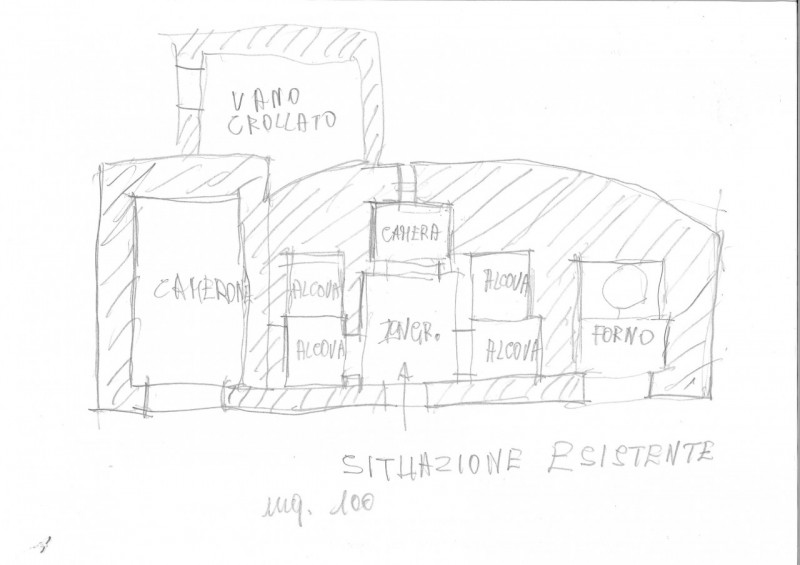 VANO
CROLLATO
CAMERA
CAMERONE
ALCOVA
ALCOVA
ALCOVA
INGR.
ALCOVA
FORNO
SITUAZIONE ESISTENTE
mq. 100